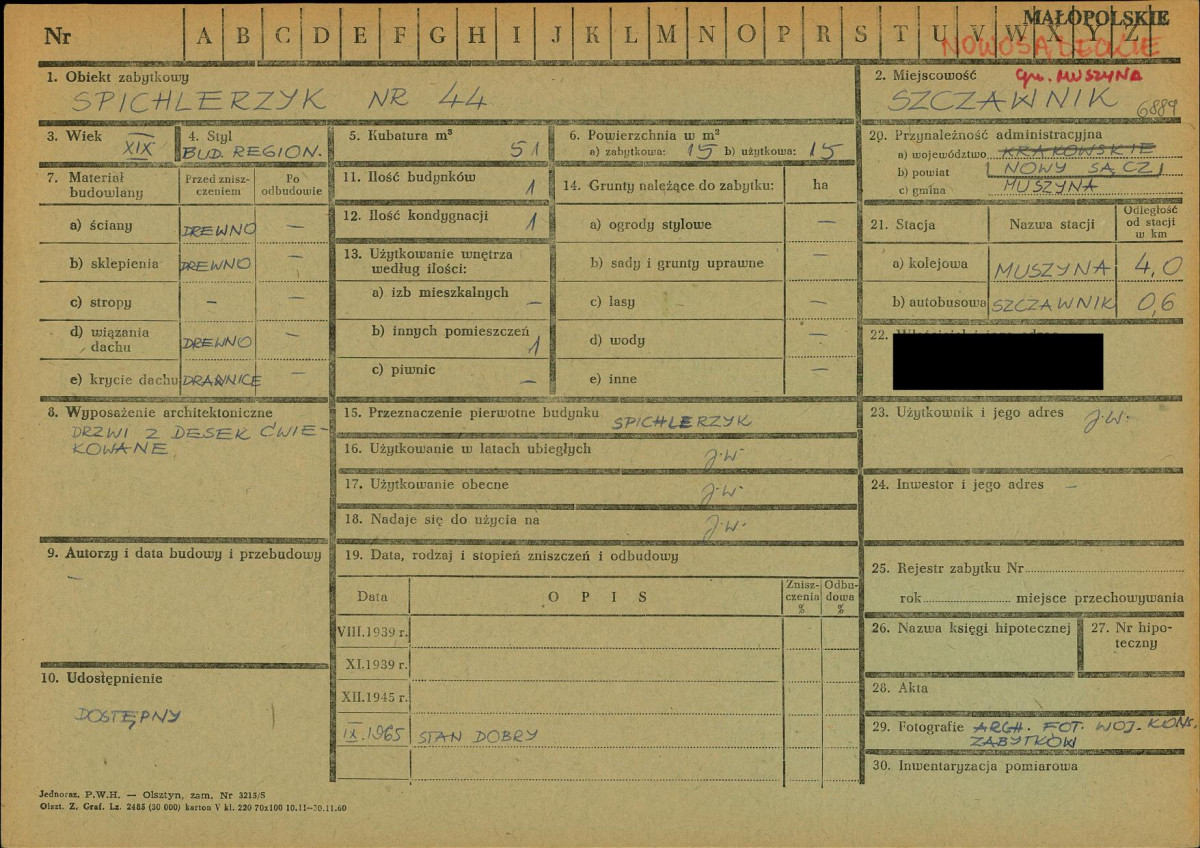 MAŁOPOLSKIE
Nr A B C D E F G H I J K L M N O P R S T U V W X Y Z
NOWOSĄDECKIE
1. Obiekt zabytkowy
SPICHLERZYK NR 44
2. Miejscowość gm. MUSZYNA
SZCZAWNIK 6889
3. Wiek XIX
4. Styl
BUD. REGION.
5. Kubatura m³
51
6. Powierzchnia w m²
a) zabytkowa: 15 b) użytkowa: 15
20. Przynależność administracyjna
a) województwo KRAKOWSKIE
b) powiat NOWY SĄCZ
c) gmina MUSZYNA
7. Materiał budowlany
Przed zniszczeniem
Po odbudowie
a) ściany DREWNO –
b) sklepienia DREWNO –
c) stropy – –
d) wiązania dachu DREWNO –
e) krycie dachu DRANNICE –
11. Ilość budynków 1
12. Ilość kondygnacji 1
13. Użytkowanie wnętrza
według ilości:
a) izb mieszkalnych –
b) innych pomieszczeń 1
c) piwnic –
14. Grunty należące do zabytku: ha
a) ogrody stylowe –
b) sady i grunty uprawne –
c) lasy –
d) wody –
e) inne –
21. Stacja Nazwa stacji Odległość od stacji w km
a) kolejowa MUSZYNA 4,0
b) autobusowa SZCZAWNIK 0,6
22.
8. Wyposażenie architektoniczne
DRZWI Z DESEK ĆWIE-
KOWANE
15. Przeznaczenie pierwotne budynku SPICHLERZYK
16. Użytkowanie w latach ubiegłych j.w.
17. Użytkowanie obecne j.w.
18. Nadaje się do użycia na j.w.
23. Użytkownik i jego adres j.w.
24. Inwestor i jego adres –
9. Autorzy i data budowy i przebudowy
–
19. Data, rodzaj i stopień zniszczeń i odbudowy
Data O P I S Zniszczenia % Odbudowa %
VIII.1939 r.
XI.1939 r.
XII.1945 r.
IX.1965 STAN DOBRY
25. Rejestr zabytku Nr
rok miejsce przechowywania
26. Nazwa księgi hipotecznej
27. Nr hipoteczny
10. Udostępnienie
DOSTĘPNY
28. Akta
29. Fotografie ARCH. FOT. WOJ. KONS.
ZABYTKÓW
30. Inwentaryzacja pomiarowa
Jednoraz. P.W.H. — Olsztyn, zam. Nr 3215/S
Olszt. Z. Graf. Lz. 2485 (30 000) karton V kl. 220 70x100 10.11—30.11.60